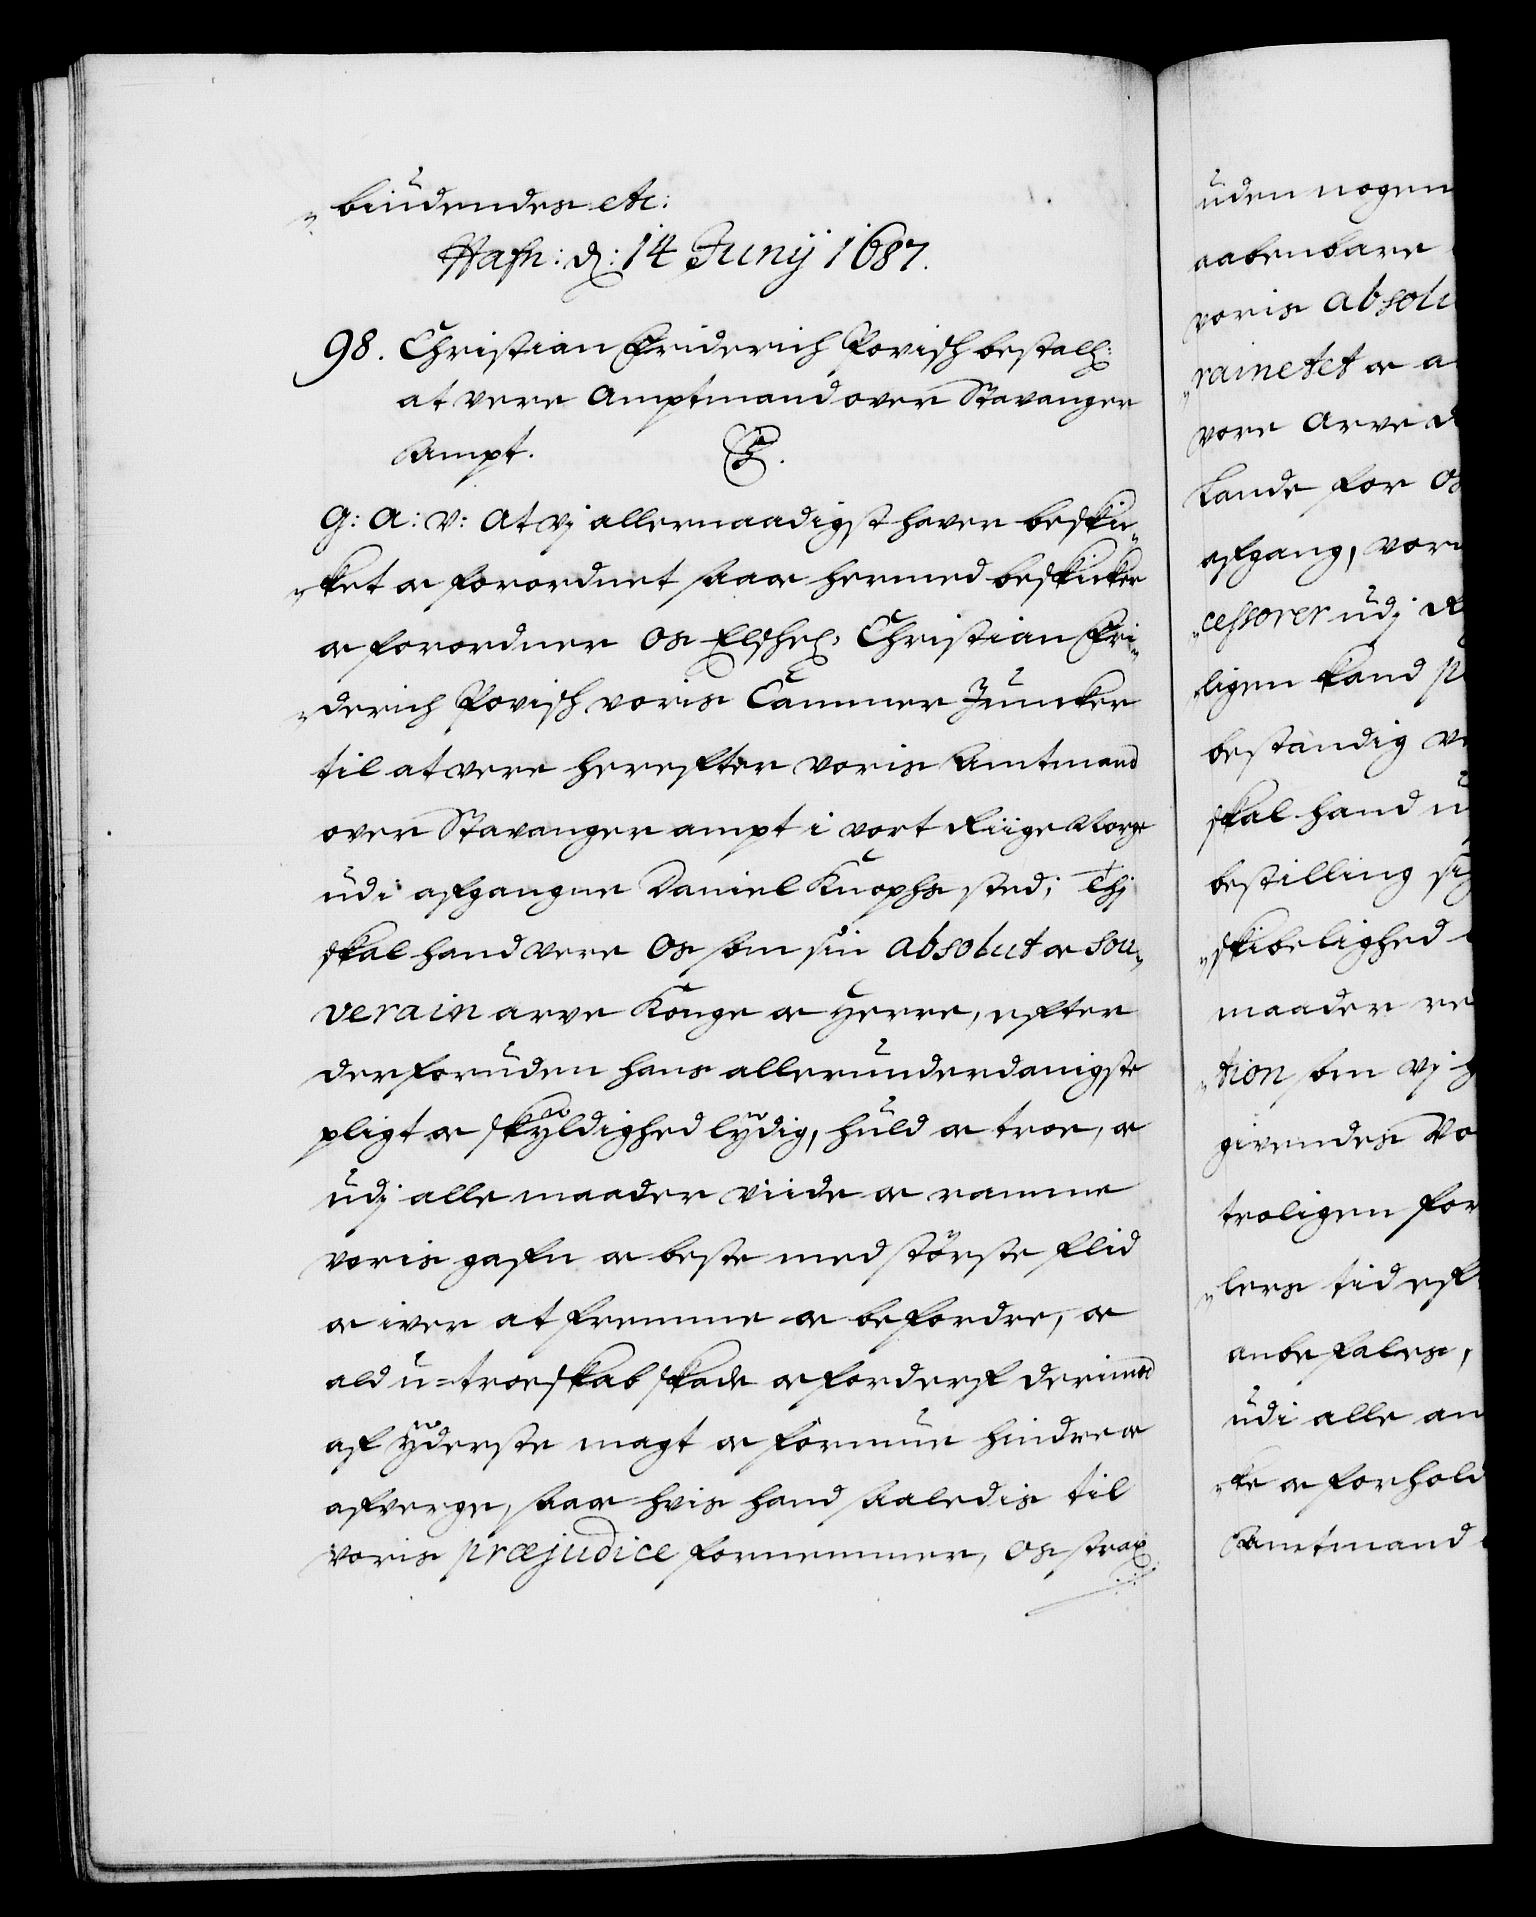 „biudendes etc:
Hafn: d: 14 Junij 1687.
98. Christian Friderich Povisch bestall:
at vere Amptmand over Stavanger
Ampt.
C5.
G: A: V: At Vj allernaadigst haver beskic„
„ket oc forordnet saa oc hermed beskicker
oc forordner Os Elschel: Christian Fri„
„derich Povisch voris Cammer Juncker
til at vere herefter voris Amtmand
over Stavanger ampt i vort Riige Norge
udi afgangne Daniel Knophs sted; Thj
skal hand vere Os som sin absolut oc Sou„
verain arve Konge oc Herre, efter
derforuden hans allerunderdanigste
pligt oc skÿldighed lÿdig, huld oc troe, oc
udj alle maader viide oc ramme
voris gafn oc beste med störste flid
oc iver at fremme oc befordre, oc
ald u=troeskab skade oc forderf derimod
af ÿderste magt oc formue hindre oc
afverge, saa oc hvis hand saaledis til
voris præjudice fornemmer, Os strax
uden nogen
aabenbare
voris absolu
„rainetet oc a
vore Arve
Lande for Os
afgang, vor
„cessorer udj
„ligen kand
bestandig
skal hand
bestilling
„skibelighed
maader
„tion som Vj
givendes
troligen for
„lers tid
anbefales,
udi alle an
„ke oc forhold
Amtmand